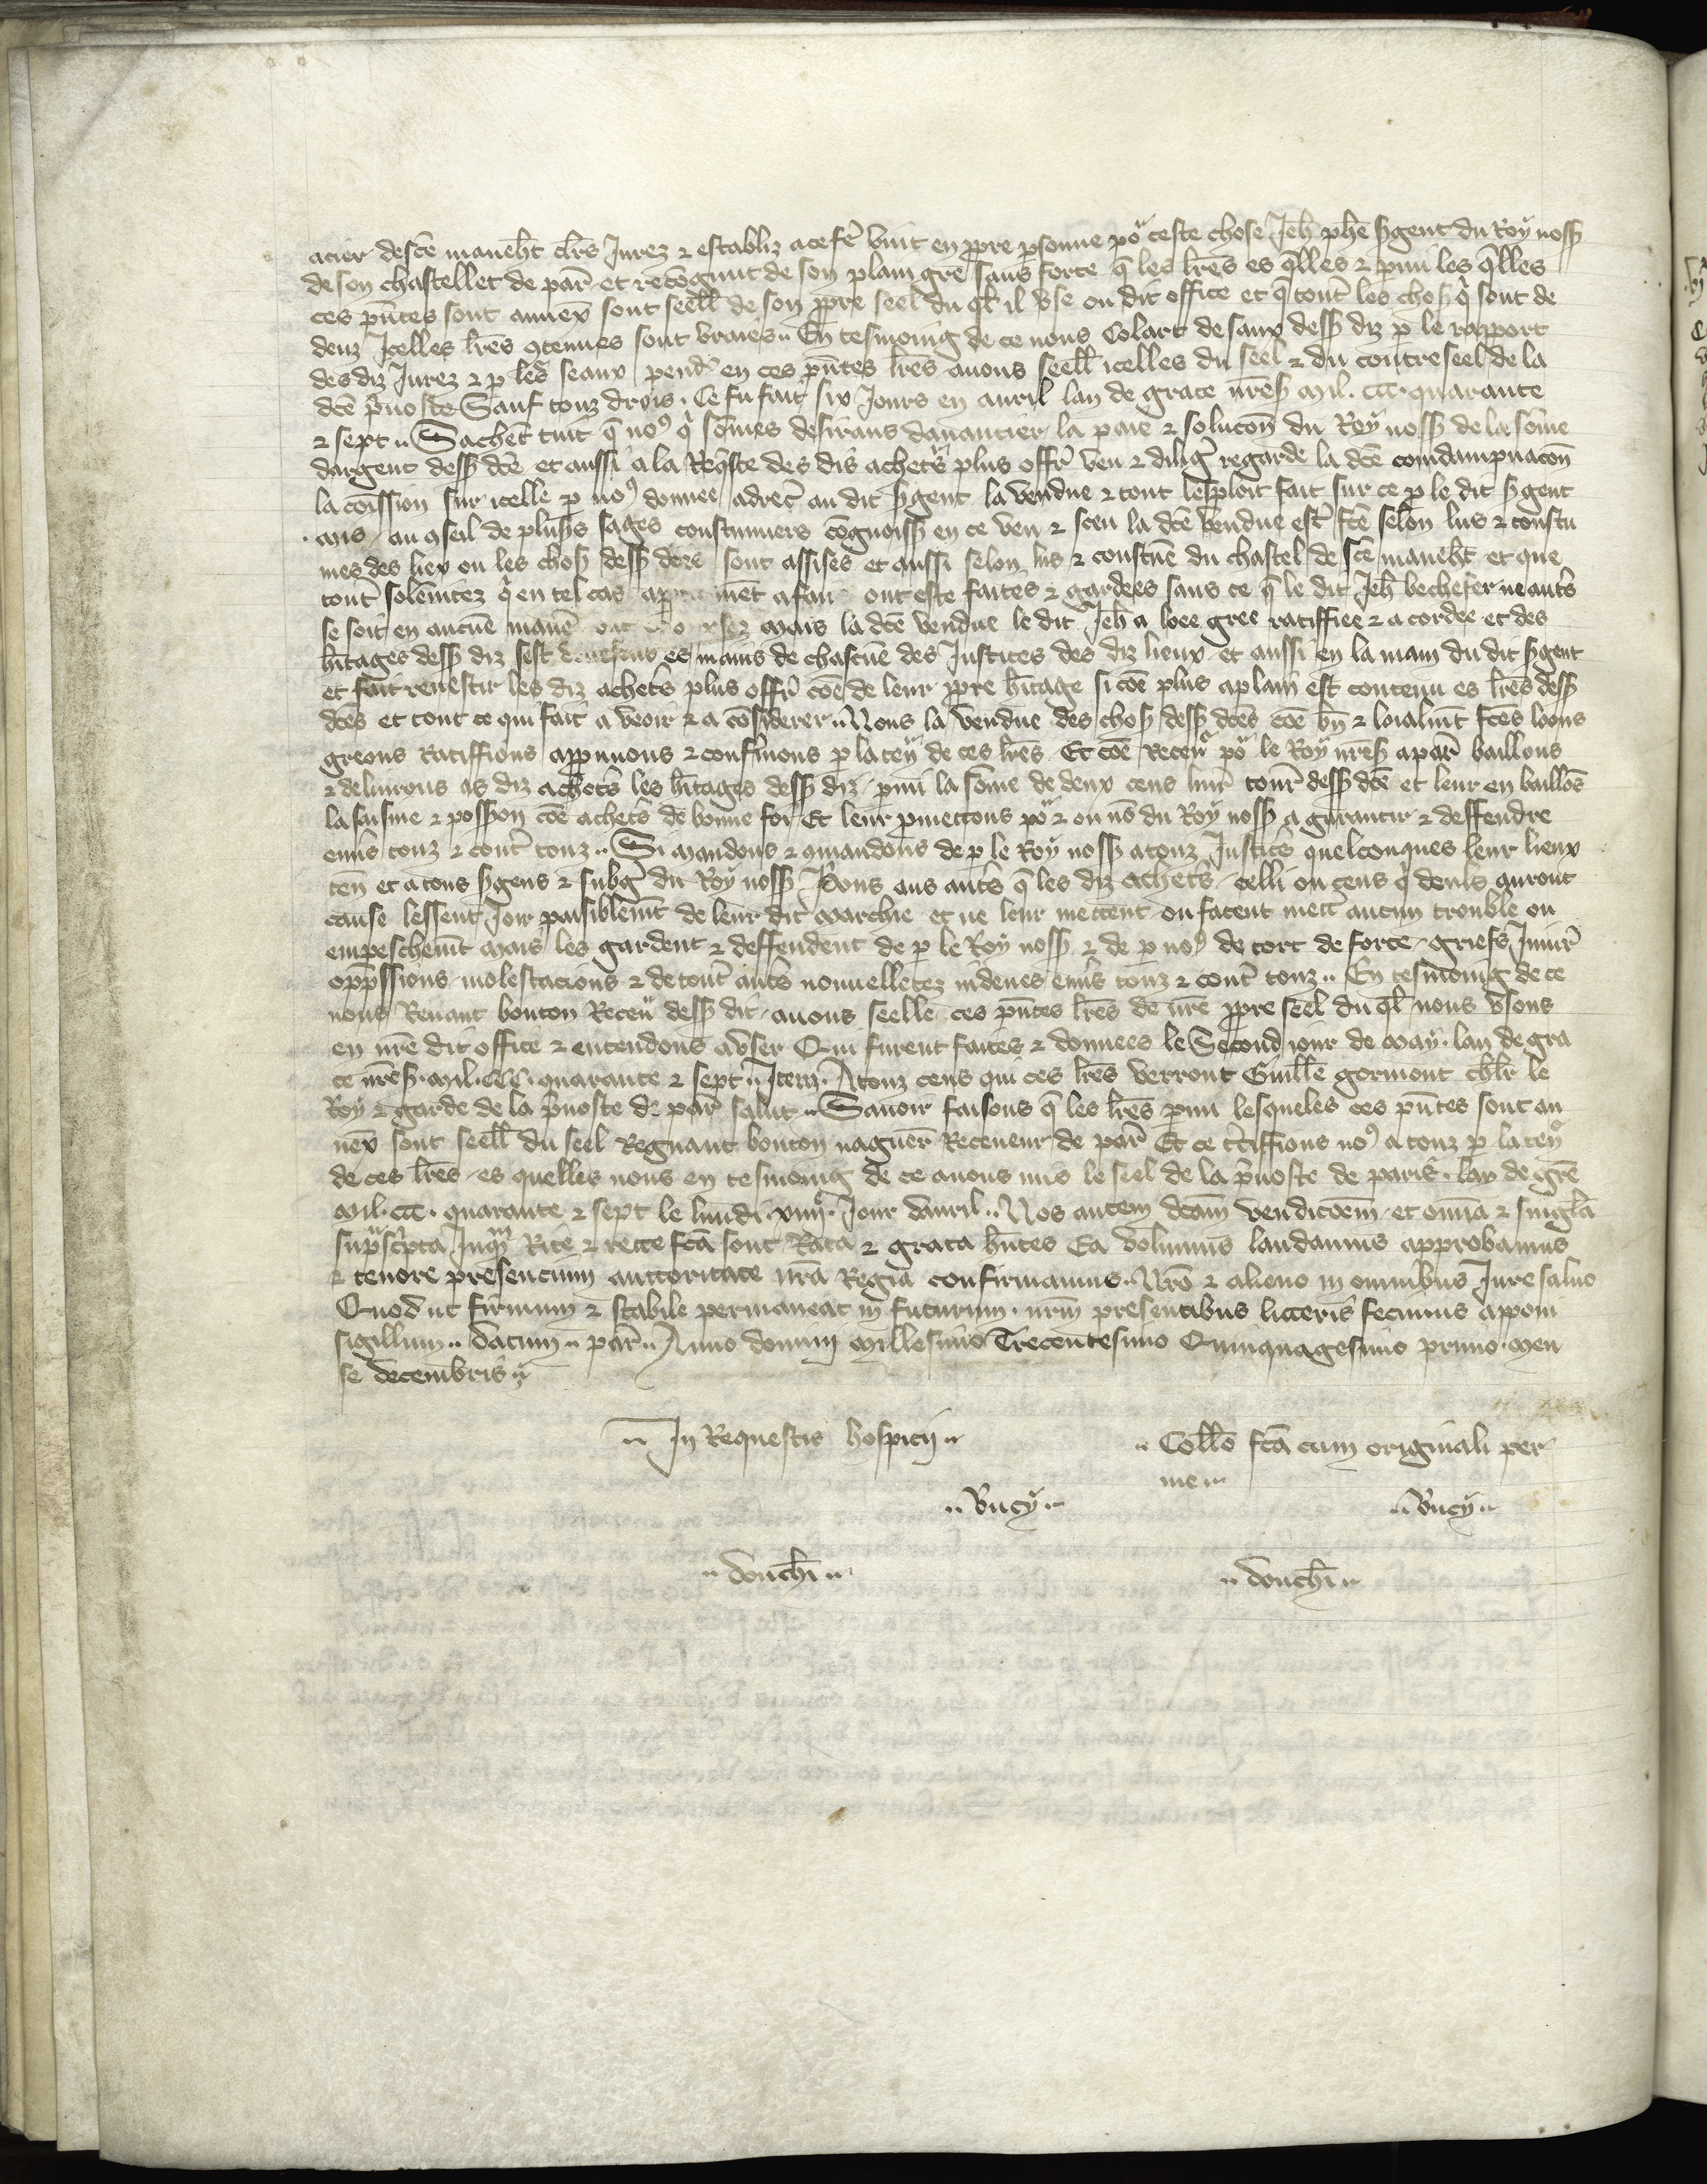 acier de sce maneht clrs Jurez ⁊ establiz a ce fe vint en ppre psonne po ceste chose Jeh phe sgent du Roy noss
de son chastellet de par et recognut de son plain gre sans force q les lres es qlles ⁊ pmi les qlles
ces pntes sont annex sont seell de son ppre seel du ql il vse ou dit office et q tout les chos q sont de
denz Jcelles lres 9tenues sont vraies En tesmoing de ce nous Colart de saux dess diz p le rapport
des diz Jurez ⁊ p les seaux pend en ces pntes lres auons seell icelles du seel ⁊ du contreseel de la
dce puoste Sauf touz drois. Ce fu fait six Jours en auril lan de grace nres mil. ccc. quarante
⁊ sept Sachent tuit q no9 q somes desirans dauancier la paie ⁊ solucon du Roy noss de la some
dargent dess dce et aussi a la Reqste des dis achets plus offr veu ⁊ dilig regarde la dce condampnacon
la comission sur icelle p no9 donnee adrec au dit sgent la vendue ⁊ tout lesploit fait sur ce p le dit sgent
mis au 9seil de plus sages coustumiers cognoiss en ce veu ⁊ sceu la dce vendue est fce selon lus ⁊ coustu
mes des liex ou les chos dess dces sont assises et aussi selon lus ⁊ coustue du chastel de sce maneht et que
tout solenitez q en tel cas a fair ont este faites ⁊ gardees sans ce q le dit Jeh bechefer ne auts
se soit en aucue mane mais la dce vendue le dit Jeh a loee gree ratiffiee ⁊ acordee et des
hitages dess diz sest deuestus es mains de chascue des Justices des diz lieux et aussi en la main du dit sgent
et fait reuestir les diz achets plus offr coe de leur ppre hitage si coe plus aplain est contenu es lres dess
dces et tout ce qui fait a veoir ⁊ a considerer Nous la vendue des chos dess dces coe bn ⁊ loialmt fces loons
greons ratiffions appuuons ⁊ confmons p la ten de ces lres Et coe Receu po le Roy nres a par baillons
⁊ deliurons as diz achets les hitages dess diz pmi la some de deux cens liur tour dess dce et leur en baillos
la saisine ⁊ posson coe achets de bonne foi Et leur pmettons po ⁊ ou no du Roy noss a garantir ⁊ deffendre
enus touz ⁊ cont touz Si mandons ⁊ 9mandons de p le Roy noss a touz Justics quelconques leur lieux
ten et a tous sgens ⁊ subg du Roy noss Pons aus auts q les diz achets celli ou ceus q deuls auront
cause lessent joir paisiblemt de leur dit marchie et ne leur mettent ou facent mett aucun trouble ou
empeschemt mais les gardent ⁊ deffendent de p le Roy noss ⁊ de p no9 de tort de force griefs Iniur
oppssions molestacions ⁊ de tout auts nouuelletez indeues enus touz ⁊ cont touz En tesmoing de ce
nous Renaut bouton Receu dess dit auons seelle ces pntes lres de nre ppre seel du ql nous vsons
en nre dit office ⁊ entendons a vser Qui furent faites ⁊ donnees le Second jour de may. lan de gra
ce nres. mil. ccc. quarante ⁊ sept Item. A touz ceus qui ces lres verront Guille gormont chlr le
Roy ⁊ garde de la puoste de par salut Sauoir faisons q les lres pmi lesqueles ces pntes sont an
nex sont seell du seel Regnaut bouton naguer Receueur de par Et ce ctiffions no9 a touz p la ten
de ces lres es quelles nous en tesmoing de ce auons mis le seel de la puoste de paris. lan de gre
mil. ccc. quarante ⁊ sept le lundi xiiij Jour dauril Nos autem dcam vendicoem et omia ⁊ singla
supscpta Inqm Rite ⁊ recte fca sont Rata ⁊ grata hntes Ea volumus laudamus approbamus
⁊ tenore presencium auctoritate nra Regia confirmamus Nro ⁊ alieno in omnibus Jure saluo
Quod ut firmum ⁊ stabile permaneat in futurum. nrm presentibus litteris fecimus apponi
sigillum datum par Anno domini millesimo Trecentesimo Quinquagesimo primo. men
se decembris
In Requestis hospicij
Collo fca cum originali per
me
Vucy
Vucy
douchi
douchi